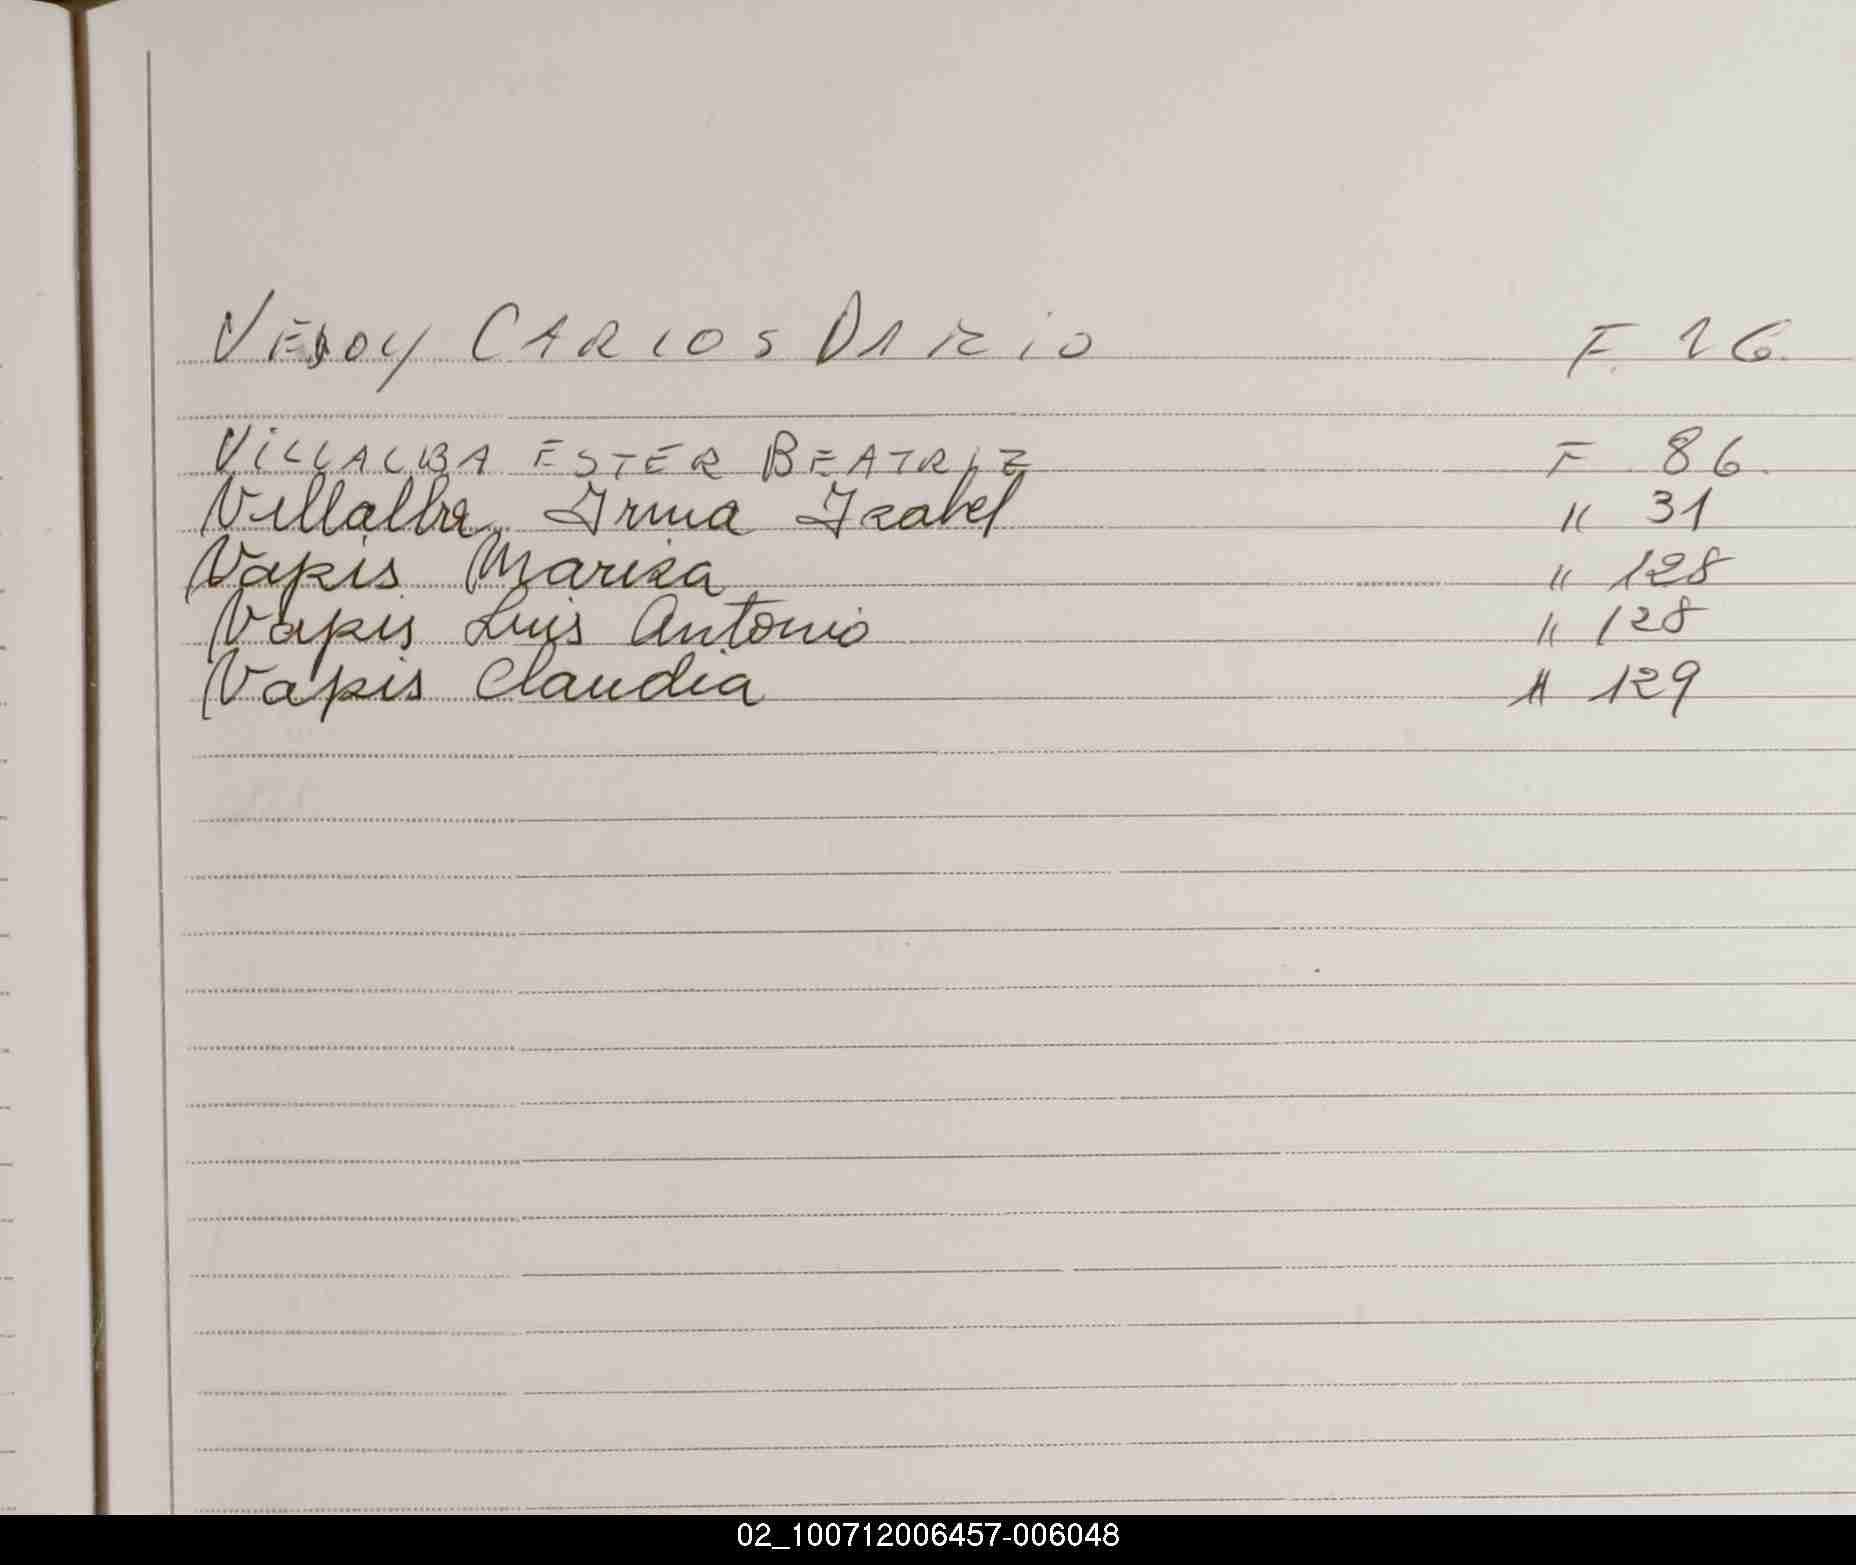 CARLOS DARIO F. 16.
VILLALBA ESTER BEATRIZ F 86.
Villalba, Irma Izabel " 31
Vapis Mariza " 128
Vapis Luis Antonio " 128
Vapis Claudia " 129
02_100712006457-006048